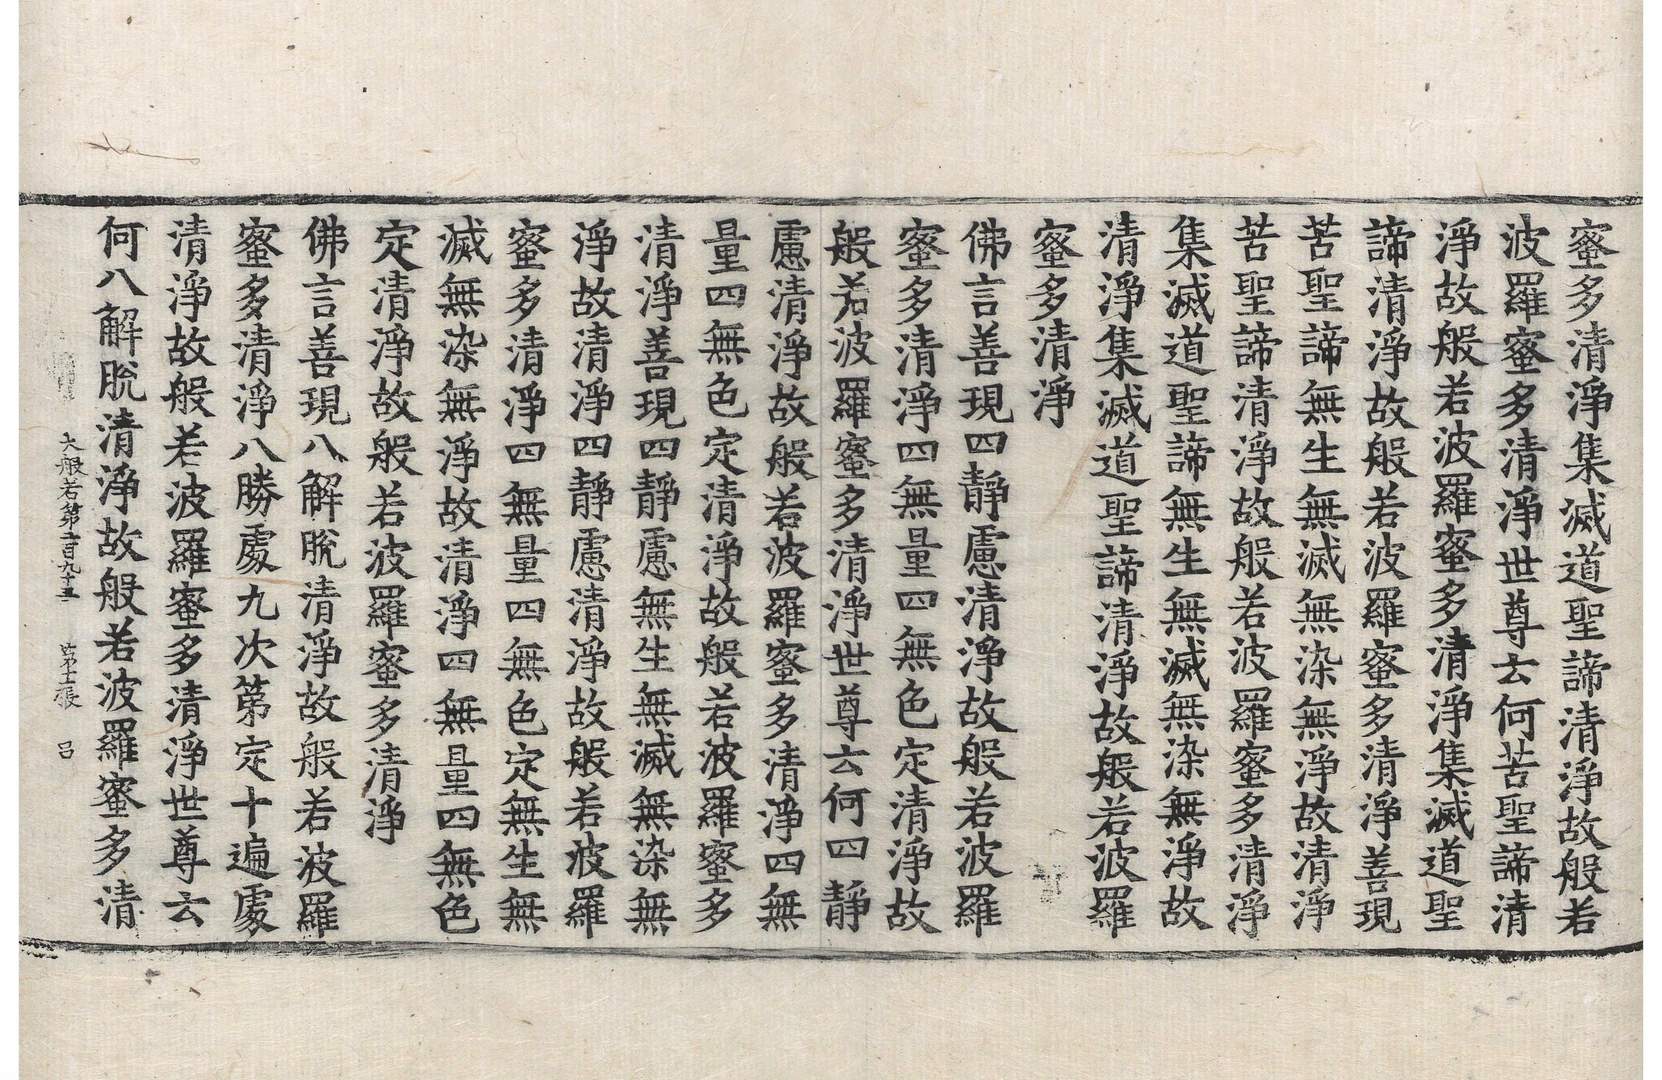 蜜多清淨集滅道聖諦清淨故般若
波羅蜜多清淨世尊云何苦聖諦清
淨故般若波羅蜜多清淨集滅道聖
諦清淨故般若波羅蜜多清淨善現
苦聖諦無生無滅無染無淨故清淨
苦聖諦清淨故般若波羅蜜多清淨
集滅道聖諦無生無滅無染無淨故
清淨集滅道聖諦清淨故般若波羅
蜜多清淨
佛言善現四靜慮清淨故般若波羅
蜜多清淨四無量四無色定清淨故
般若波羅蜜多清淨世尊云何四靜
慮清淨故般若波羅蜜多清淨四無
量四無色定清淨故般若波羅蜜多
清淨善現四靜慮無生無滅無染無
淨故清淨四靜慮清淨故般若波羅
蜜多清淨四無量四無色定無生無
滅無染無淨故清淨四無量四無色
定清淨故般若波羅蜜多清淨
佛言善現八解脫清淨故般若波羅
蜜多清淨八勝處九次第定十遍處
清淨故般若波羅蜜多清淨世尊云
何八解脫清淨故般若波羅蜜多清
大般若第二百九十五 張 呂